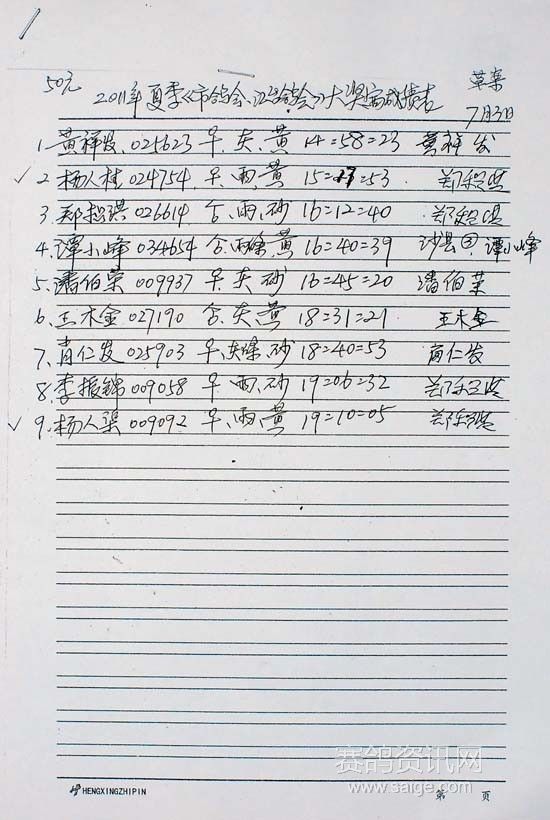 50元
草案
2011年夏季《市鸽会、汇鸽会》大奖赛成绩表
7月3日
1. 黄祥发 025623 早、灰、黄 14=58=23 黄祥发
✓ 2. 杨人桂 024754 早、雨、黄 15=17=53
3. 郑招琪 026614 合、雨、砂 16=12=40
4. 谭小峰 034654 合、雨条、黄 16=40=39 沙县团、谭小峰
5. 潘伯荣 009937 早、灰、砂 16=45=20 潘伯荣
6. 王木金 027190 合、灰、黄 18=31=21 王木金
7. 肖仁发 025903 早、灰绛、砂 18=40=53 肖仁发
8. 李振锦 009058 早、雨、砂 19=06=32
✓ 9. 杨人渠 009092 早、雨、黄 19=10=05
赛鸽资讯网
HENGXINGZHIPIN
www.saige.com
第 页